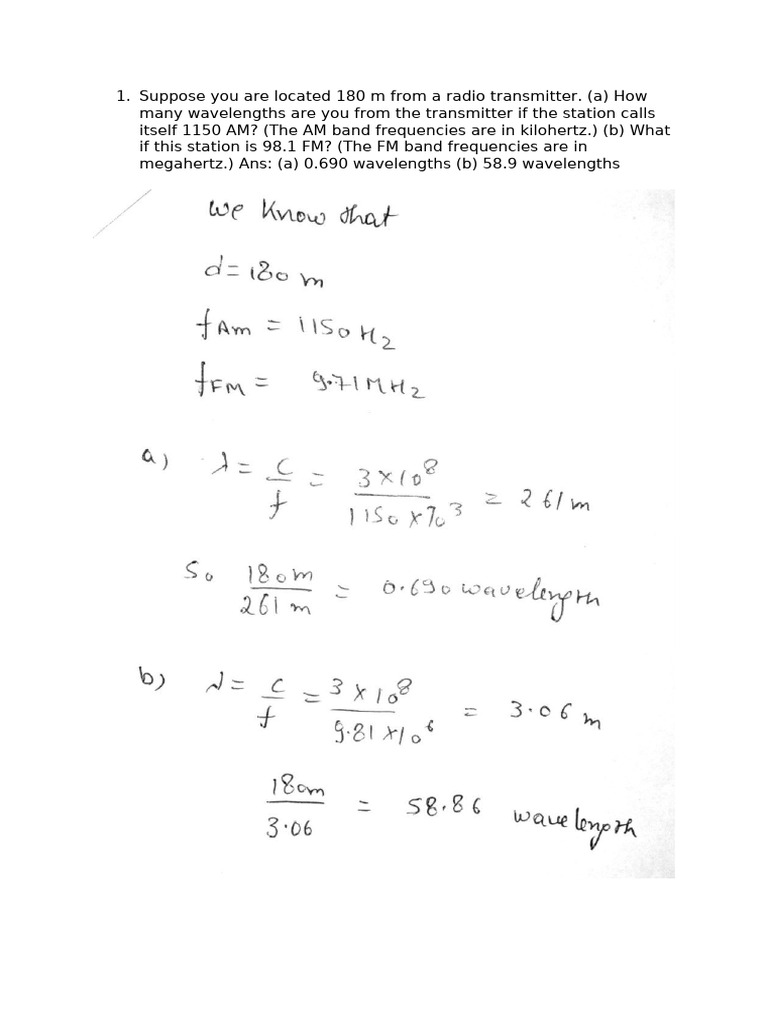 1. Suppose you are located 180 m from a radio transmitter. (a) How
many wavelengths are you from the transmitter if the station calls
itself 1150 AM? (The AM band frequencies are in kilohertz.) (b) What
if this station is 98.1 FM? (The FM band frequencies are in
megahertz.) Ans: (a) 0.690 wavelengths (b) 58.9 wavelengths
We know that
d = 180 m
fAm = 1150 Hz
fFM = 9.71 MHz
a) λ = c/f = 3×10^8/1150×10^3 = 261 m
So 180m/261 m = 0.690 wavelength
b) λ = c/f = 3×10^8/9.81×10^6 = 3.06 m
180m/3.06 = 58.86 wavelength